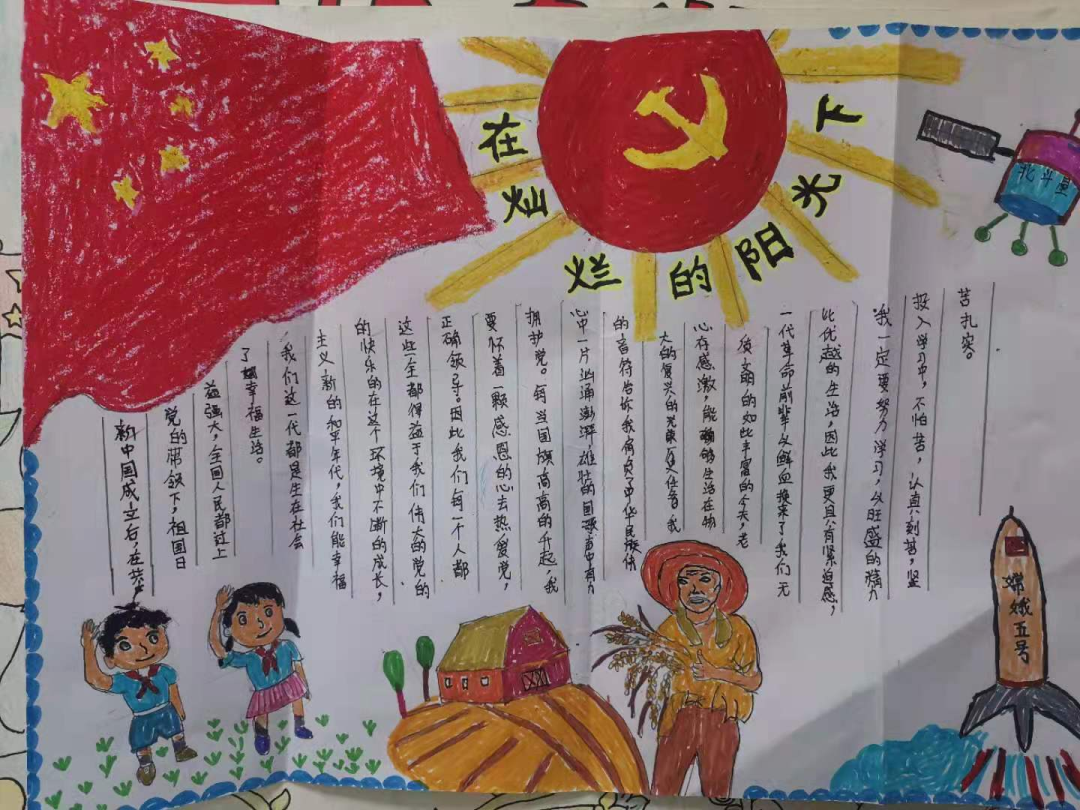 在灿烂的阳光下
北斗星
新中国成立后,在共产
党的带领下,祖国日
益强大,全国人民都过上
了幸福生活。
我们这一代都是生在社会
主义新的和平年代,我们能幸福
的快乐的在这个环境中不断的成长,
这些全都得益于我们伟大的党的
正确领导。因此我们每一个人都
要怀着一颗感恩的心去热爱党,
拥护党。每当国旗高高的升起,我
心中一片汹涌澎湃,雄壮的国歌声中有力
的音符告诉我肩负了中华民族伟
大的复兴的光荣历史任务。我
心存感激,能够生活在物
质文明的如此丰富的今天,老
一代革命前辈以鲜血换来了我们无
比优越的生活,因此我更具有紧迫感,
我一定要努力学习,以旺盛的精力
投入学习中,不怕苦,认真刻苦,坚
苦扎实。
嫦娥五号